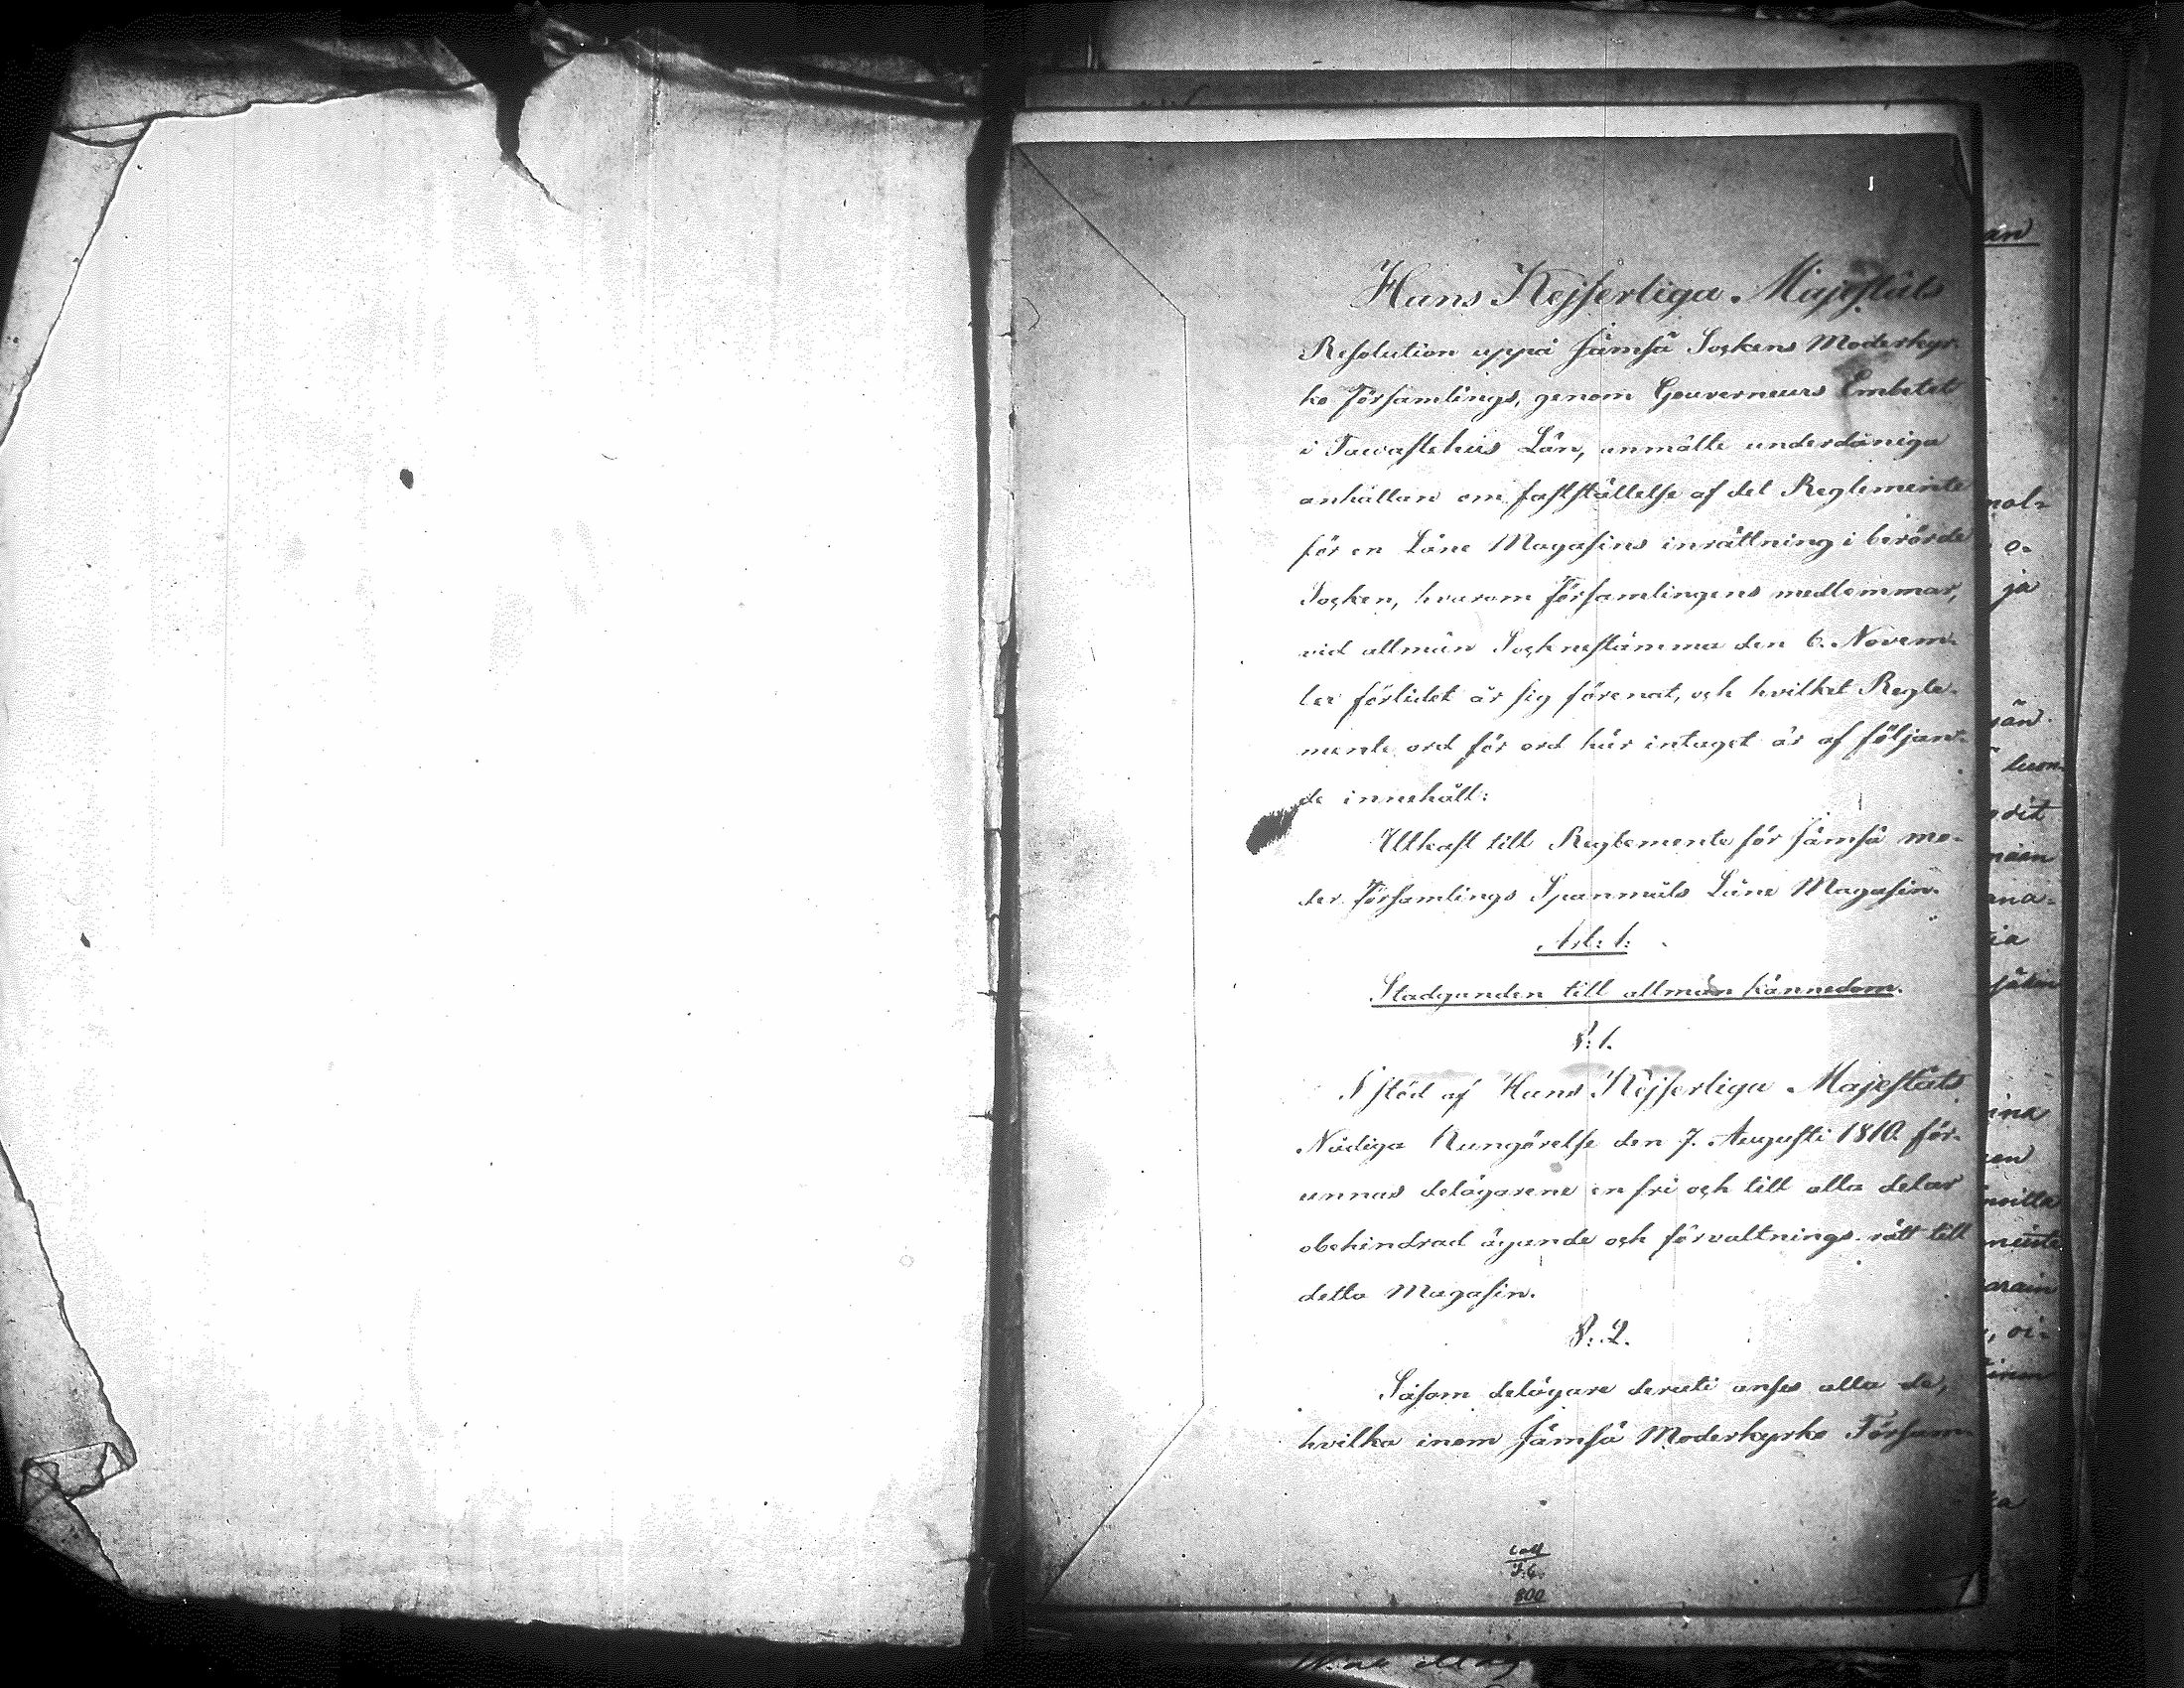 Hans Kejserliga Majestäts
Resolution uppå Jämsä Sockens Moderkyr-
ko Församlings, genom Gouverneurs Embetet
i Tawastehus Län, anmälte underdåniga
anhållan om fastställelse af det Reglemente
för en Låne Magasins inrättning i berörde
Socken, hvarom Församlingens medlemmar,
vid allmän Sockne stämma den 6. Novem-
ber förlidet år sig förenat, och hvilket Regle-
mente ord för ord här intaget är af följan-
de innehåll:
Utkast till Reglemente för Jämsä mo-
der Församlings Spanmåls Låne Magasin.
Art: 1:
Stadganden till allmän kännedom.
§: 1.
I stöd af Hans Kejserliga Majestäts
Nådiga Kungörelse den 7. Augusti 1810. för-
unnas delägarene en fri och till alla delar
obehindrad ägande och förvaltnings rätt till
detta Magasin.
§: 2.
Såsom delägare deruti anses alla de,
hvilka inom Jämsä Moderkyrko Försam-